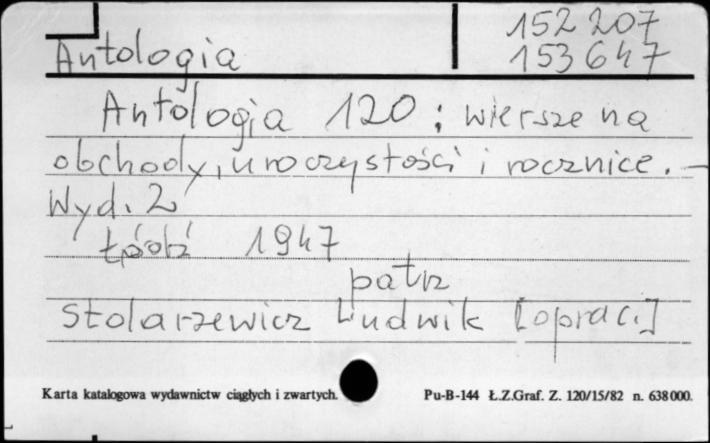 152 207
Antologia 153 647
Antologia 120 : wiersze na
obchody, uroczystości i rocznice. –
Wyd. 2
Łódź 1947
patrz
Stolarzewicz Ludwik [oprac.]
Karta katalogowa wydawnictw ciągłych i zwartych. Pu-B-144 Ł.Z.Graf. Z. 120/15/82 n. 638000.